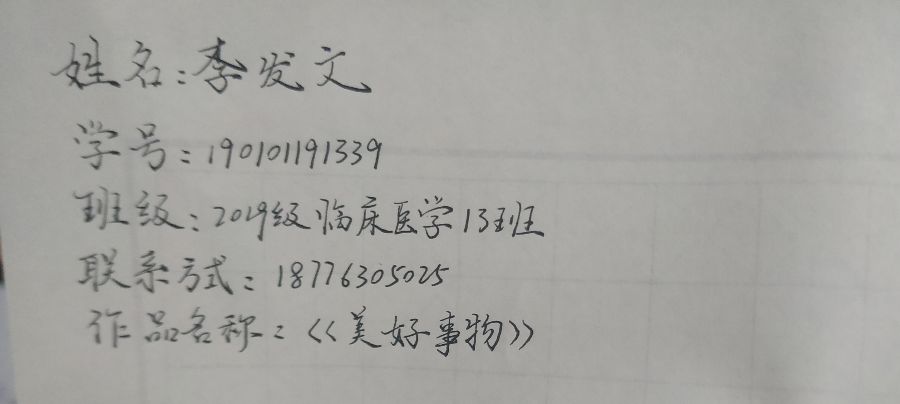 姓名:李发文
学号:190101191339
班级:2019级临床医学13班
联系方式:18776305025
作品名称:《美好事物》